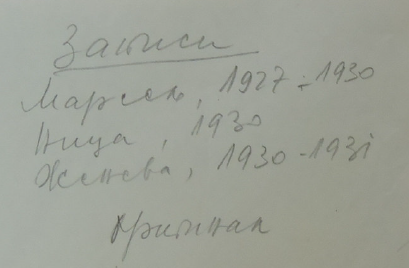 Записи
Марсель, 1927-1930
Ница, 1930
Женева, 1930-1931
Оригинал